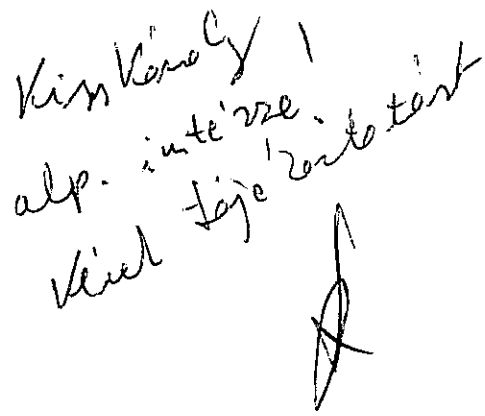 Kiss Károly
alp. intézze!
Kérek tájékoztatást